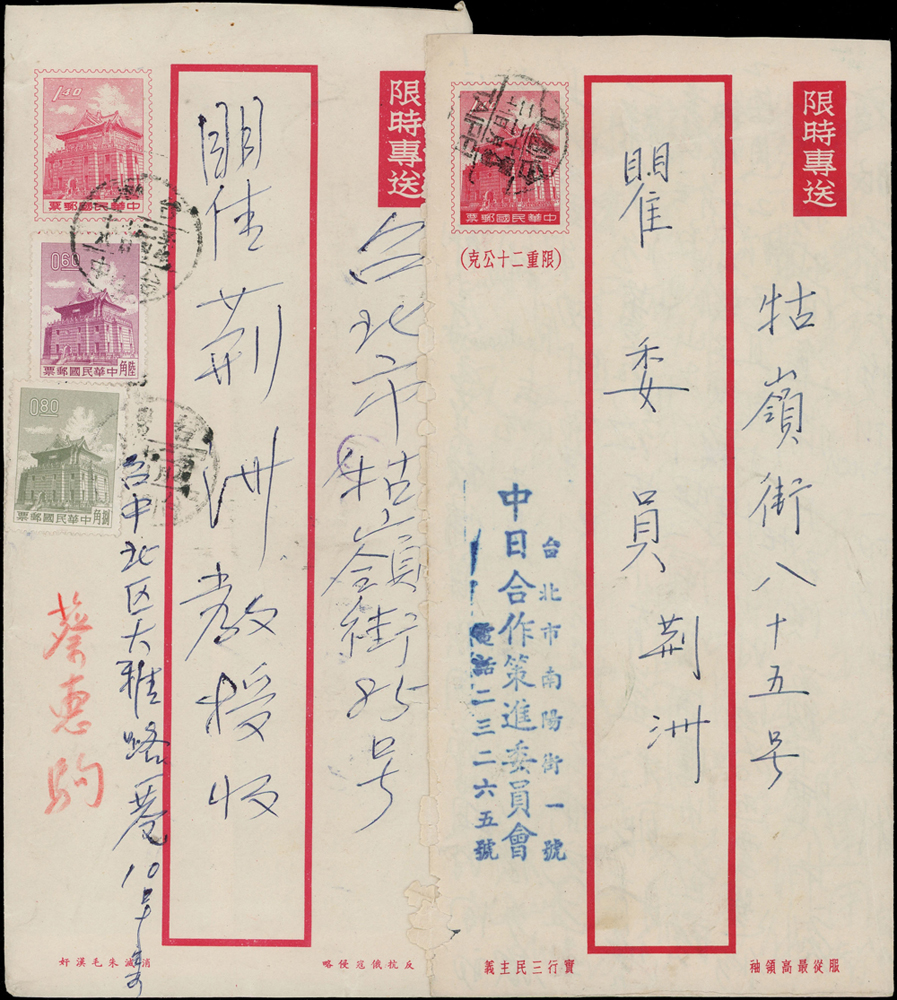 限時專送
台北市牯嶺街85号
瞿荆洲教授收
1.40
中華民國郵票
0.60
中華民國郵票
陸角
0.80
中華民國郵票
捌角
台中北区大雅路
10号
蔡惠
反抗俄寇侵略
消滅朱毛漢奸
限時專送
牯嶺街八十五号
瞿委員荆洲
中華民國郵票
(限重二十公克)
TAIPEI
台北市南陽街一號
中日合作策進委員會
電話二三二六五號
服從最高領袖
實行三民主義